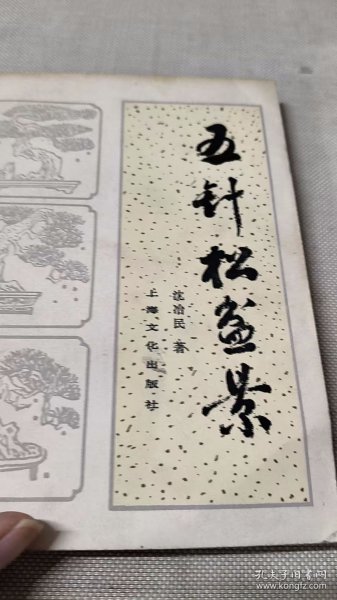 五针松盆景
沈冶民 著
上海文化出版社
孔夫子旧书网
www.kongfz.com